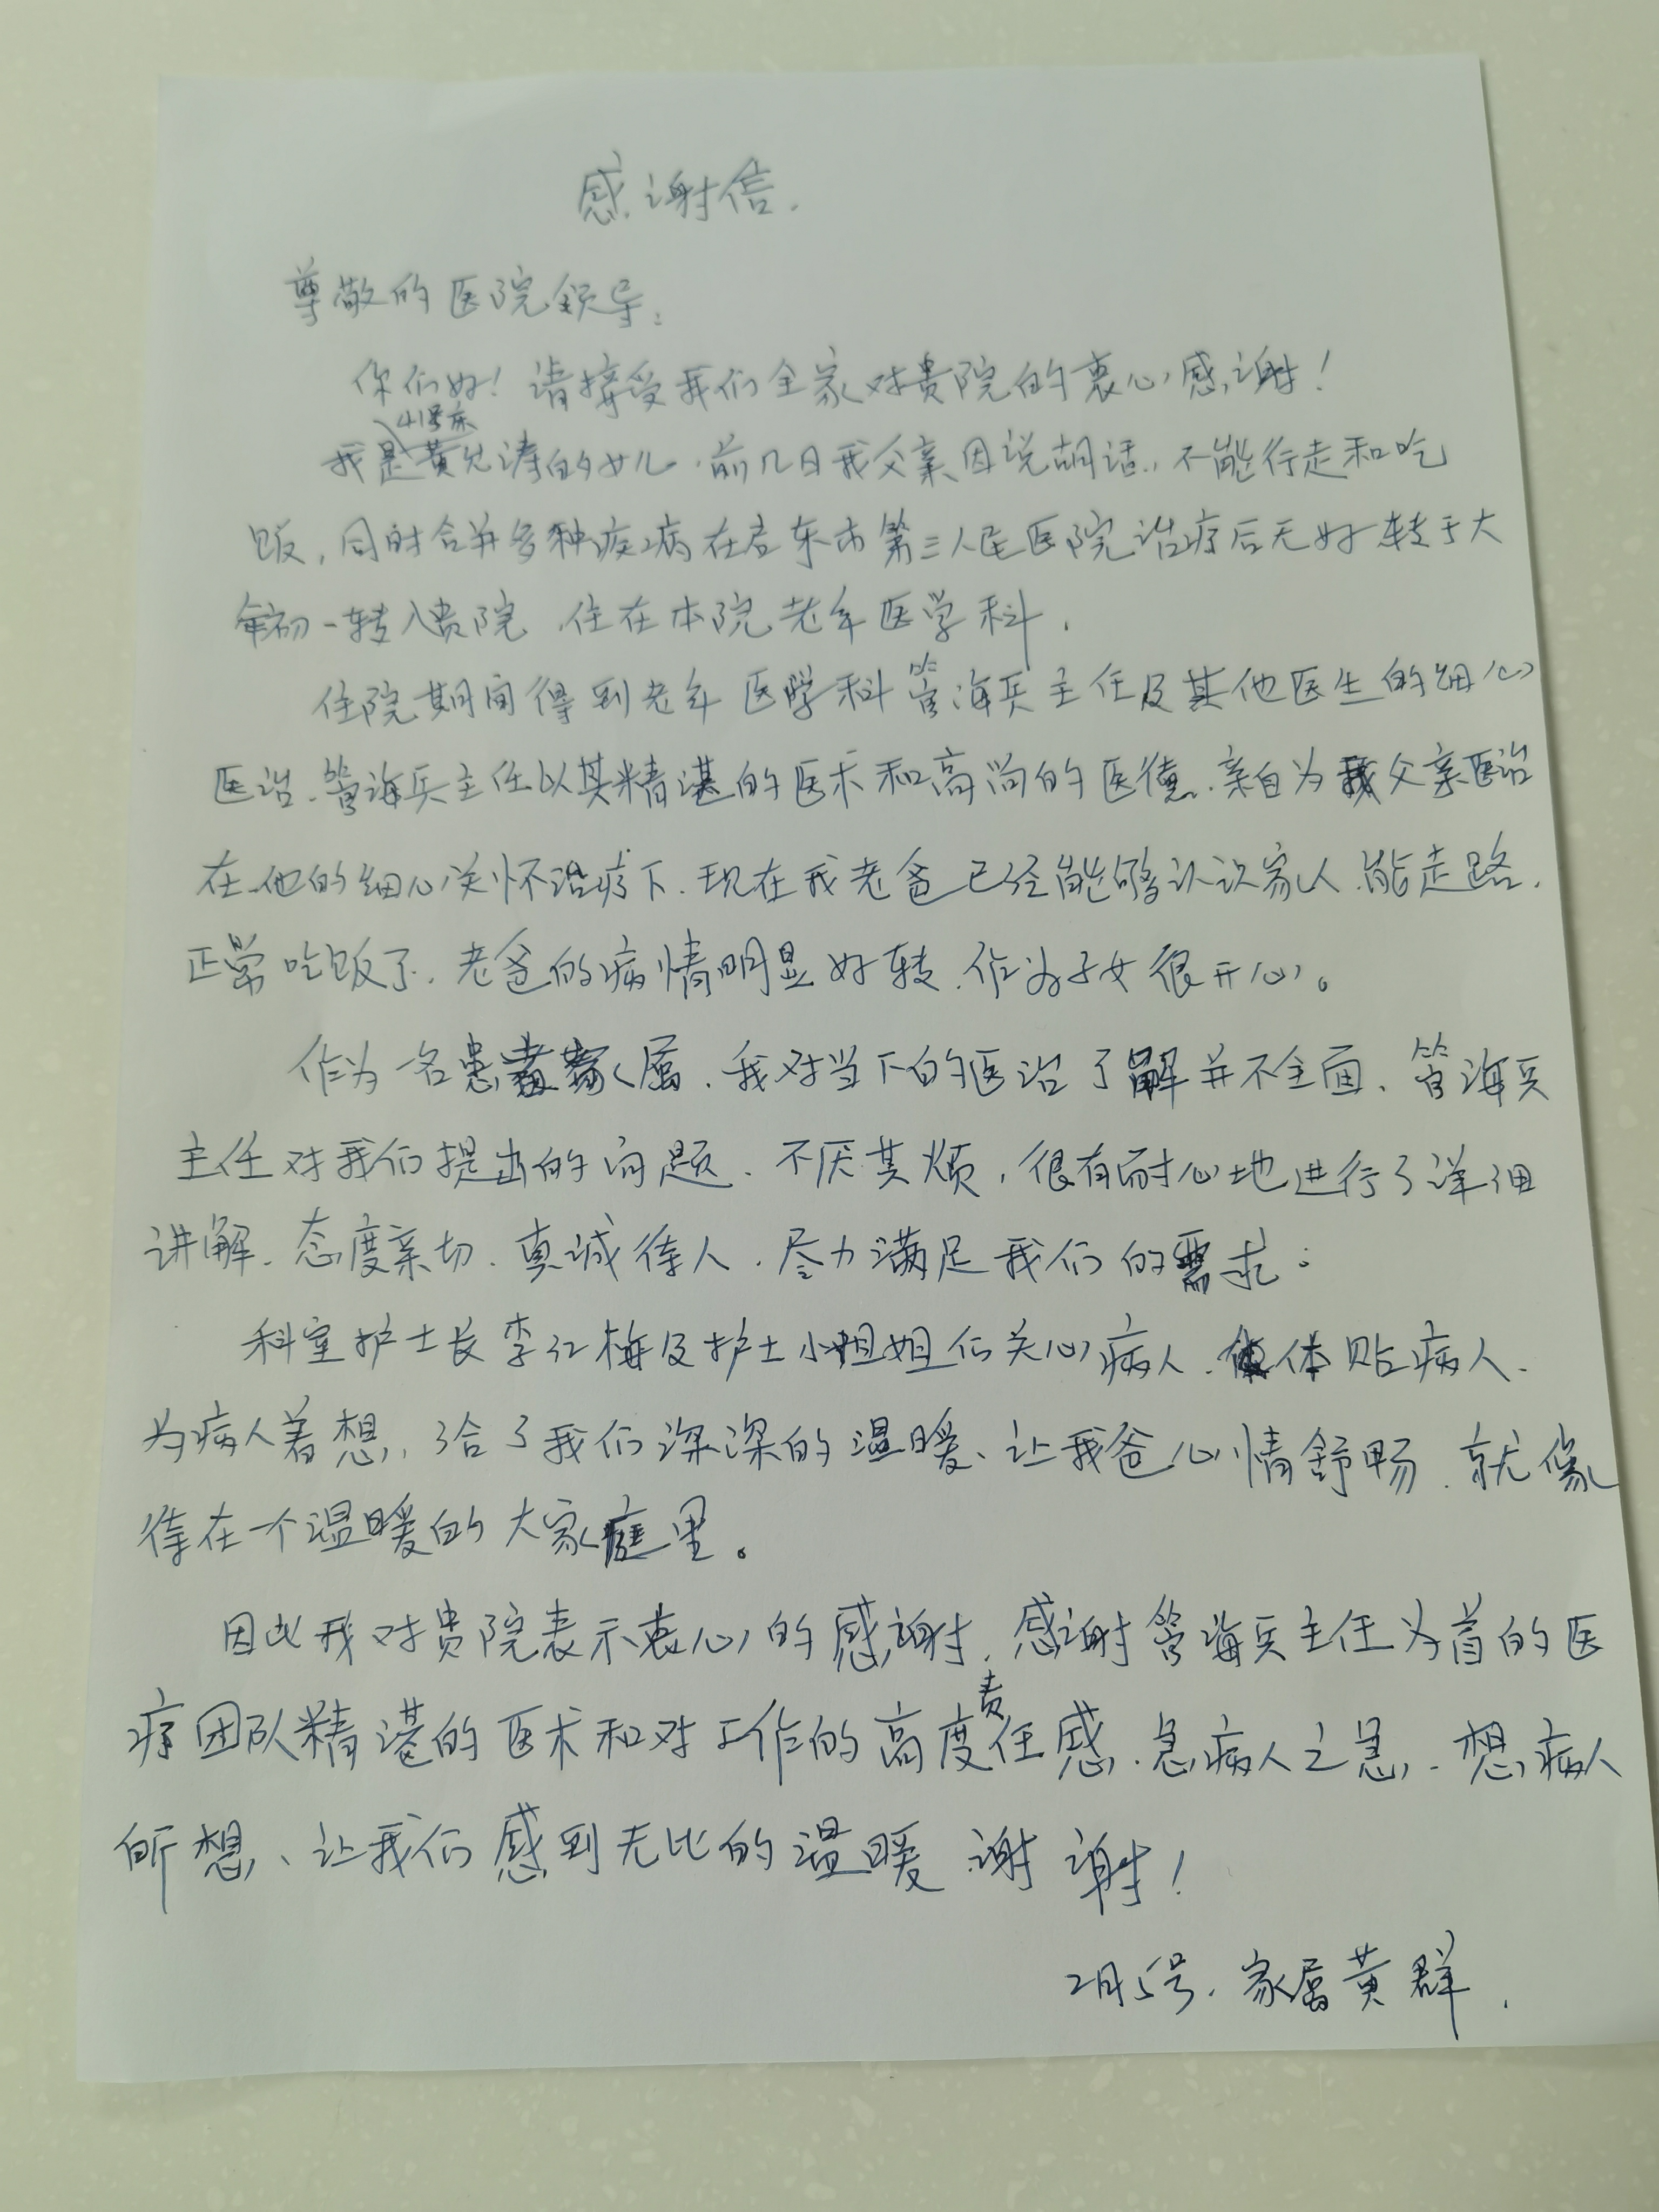 感谢信.
尊敬的医院领导：
你们好！请接受我们全家对贵院的衷心感谢！
41号床
我是黄允涛的女儿.前几日我父亲因说胡话.不能行走和吃
饭,同时合并多种疾病在启东市第三人民医院治疗后无好转于大
年初一转入贵院.住在本院老年医学科.
住院期间得到老年医学科管海兵主任及其他医生的细心
医治.管海兵主任以其精湛的医术和高尚的医德.亲自为我父亲医治
在他的细心关怀治疗下.现在我老爸已经能够认识家人.能走路.
正常吃饭了.老爸的病情明显好转.作为子女很开心。
作为一名患者家属.我对当下的医治了解并不全面、管海兵
主任对我们提出的问题.不厌其烦,很有耐心地进行了详细
讲解.态度亲切.真诚待人.尽力满足我们的需求。
科室护士长李红梅及护士小姐姐们关心病人.体贴病人.
为病人着想,给了我们深深的温暖、让我爸心情舒畅.就像
待在一个温暖的大家庭里。
因此我对贵院表示衷心的感谢.感谢管海兵主任为首的医
疗团队精湛的医术和对工作的高度责任感.急病人之急.想病人
所想、让我们感到无比的温暖.谢谢！
2月5号.家属黄群.